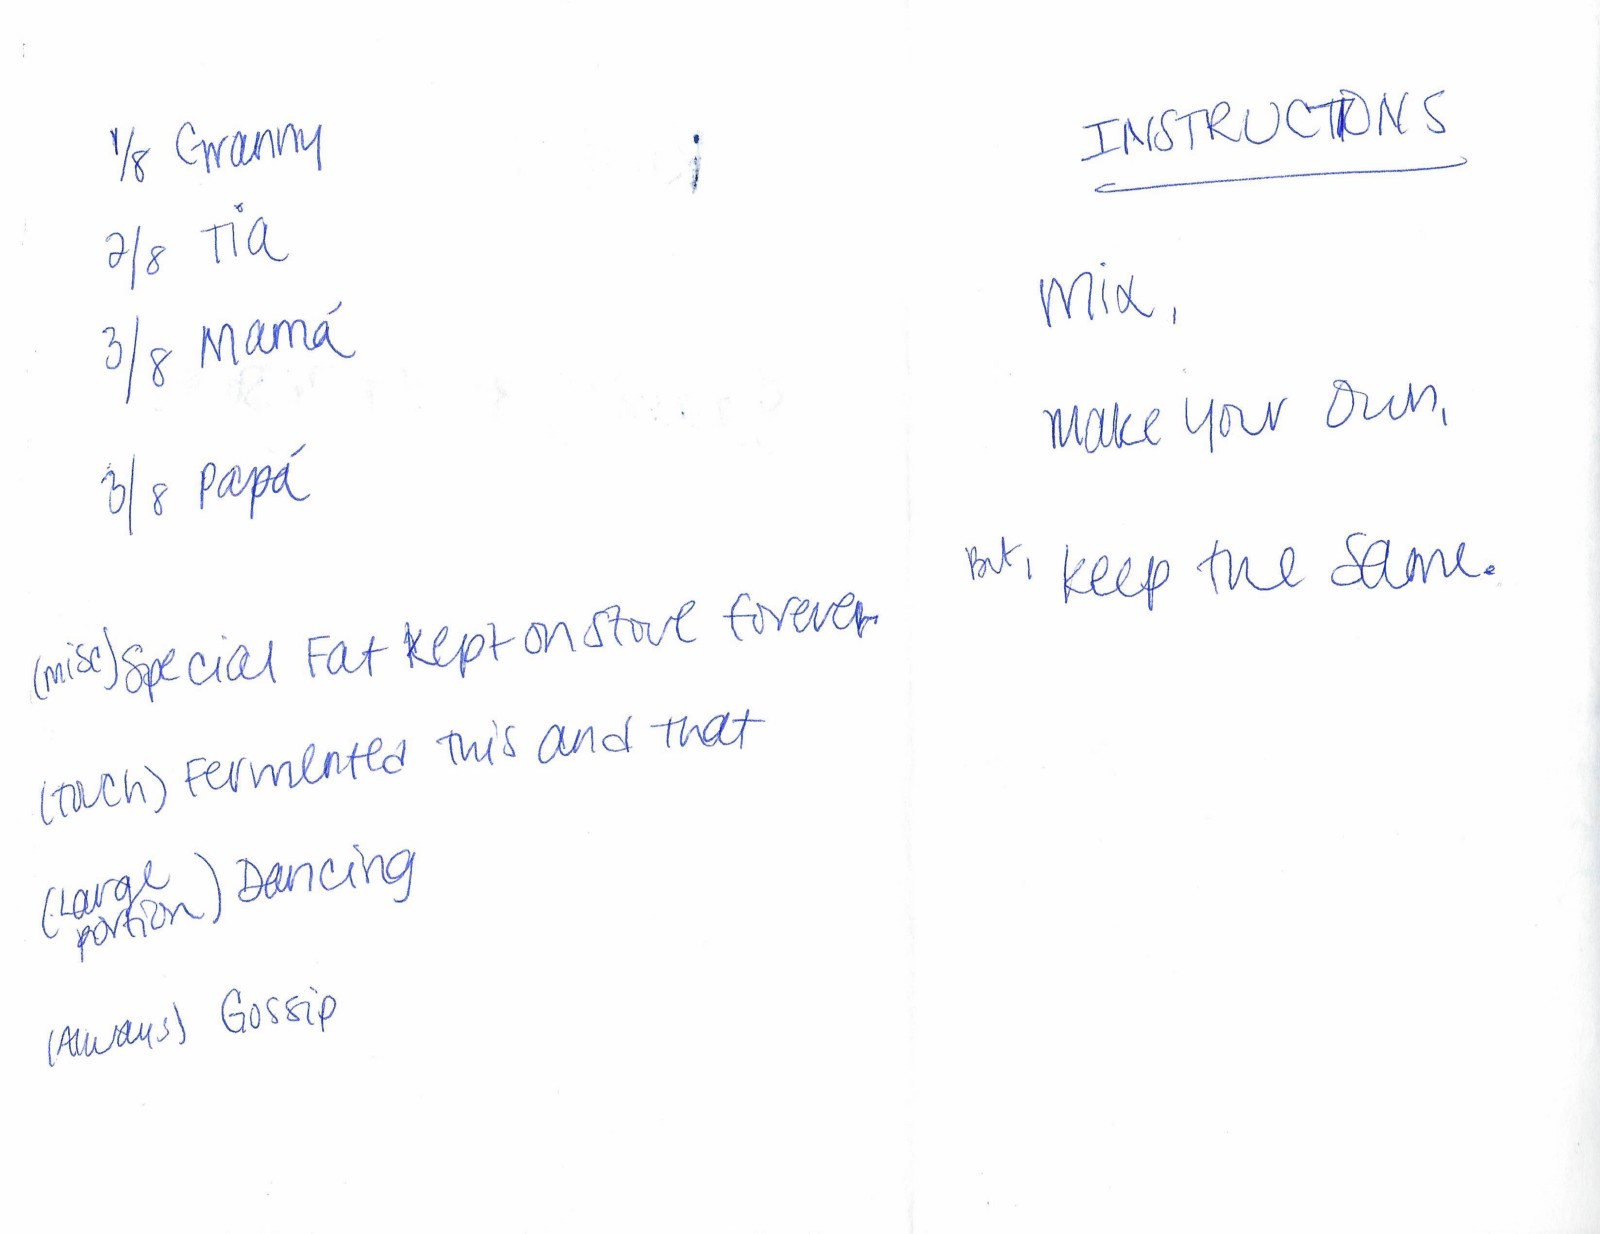 1/8 Granny
2/8 Tia
3/8 Mamá
3/8 Papá
(misc) Special Fat kept on stove forever
(touch) Fermented this and that
(Large portion) Dancing
(Always) Gossip
INSTRUCTIONS
Mix,
make your own,
But, keep the same.